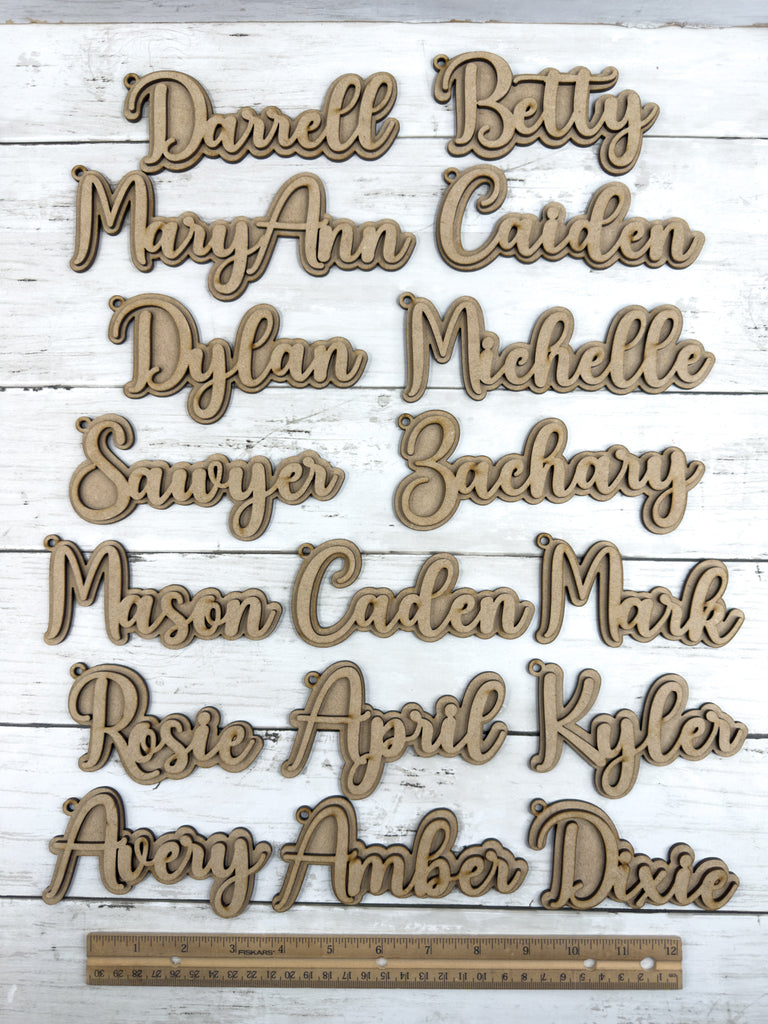 Darrell Betty
MaryAnn Caiden
Dylan Michelle
Sawyer Zachary
Mason Caden Mark
Rosie April Kyler
Avery Amber Dixie
1 2 3 4 5 6 7 8 9 10 11 12
FISKARS
30 29 28 27 26 25 24 23 22 21 20 19 18 17 16 15 14 13 12 11 10 9 8 7 6 5 4 3 2 1